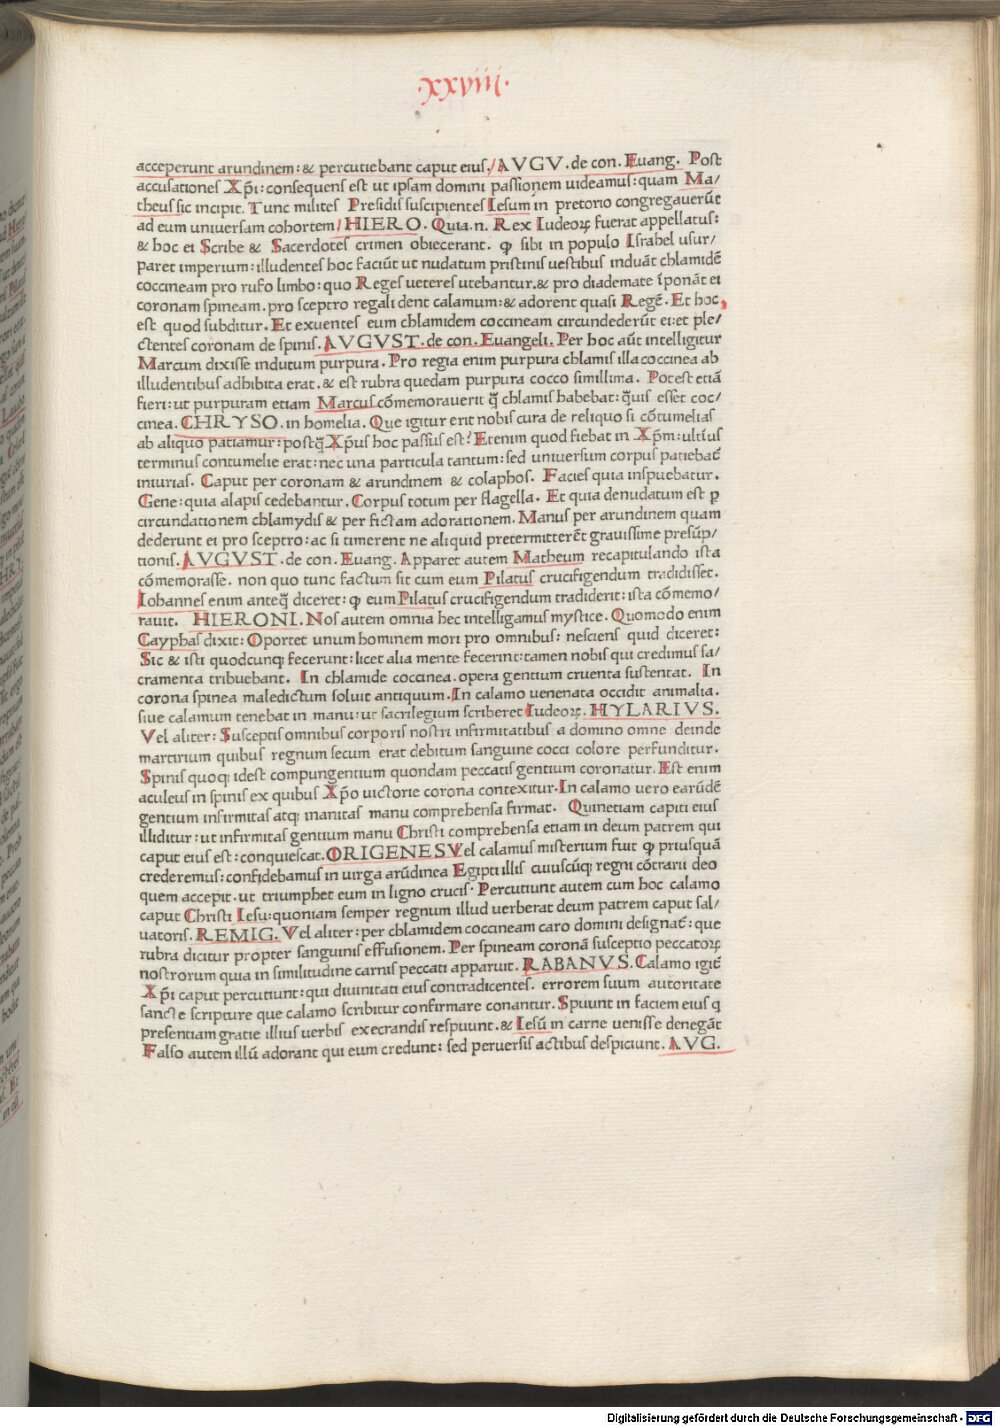 .xxviii.
acceperunt arundinem: & percutiebant caput eius. AVGV. de con. Euang. Post
accusationes Xp̄i: consequens est ut ipsam domini passionem uideamus: quam Ma/
theus sic incipit. Tunc milites Presidis suscipientes Iesum in pretorio congregauerūt
ad eum uniuersam cohortem HIERO. Quia .n. Rex Iudeoꝝ fuerat appellatus:
& hoc ei Scribe & Sacerdotes crimen obiecerant. ꝙ sibi in populo Israhel usur/
paret imperium: illudentes hoc faciūt ut nudatum pristinis uestibus induāt chlamidē
coccineam pro rufo limbo: quo Reges ueteres utebantur. & pro diademate īponāt ei
coronam spineam. pro sceptro regali dent calamum: & adorent quasi Regē. Et hoc
est quod subditur. Et exuentes eum chlamidem coccineam circundederūt ei: et ple/
ctentes coronam de spinis. AVGVST. de con. Euangeli. Per hoc aūt intelligitur
Marcum dixisse indutum purpura. Pro regia enim purpura chlamis illa coccinea ab
illudentibus adhibita erat. & est rubra quedam purpura cocco simillima. Potest etiā
fieri: ut purpuram etiam Marcus cōmemorauerit q̄ chlamis habebat: q̄uis esset coc/
cinea. CHRYSO. in homelia. Que igitur erit nobis cura de reliquo si cōtumelias
ab aliquo patiamur: postq̄ Xp̄us hoc passus est? Etenim quod fiebat in Xp̄m: ultius
terminus contumelie erat: nec una particula tantum: sed uniuersum corpus patiebat̄
iniurias. Caput per coronam & arundinem & colaphos. Facies quia inspuebatur.
Gene: quia alapis cedebantur. Corpus totum per flagella. Et quia denudatum est ꝑ
circundationem chlamydis & per fictam adorationem. Manus per arundinem quam
dederunt ei pro sceptro: ac si timerent ne aliquid pretermitterēt grauissime presūp/
tionis. AVGVST. de con. Euang. Apparet autem Matheum recapitulando ista
cōmemorasse. non quo tunc factum sit cum eum Pilatus crucifigendum tradidisset.
Iohannes enim anteq̄ diceret: ꝙ eum Pilatus crucifigendum tradiderit: ista cōmemo/
rauit. HIERONI. Nos autem omnia hec intelligamus mystice. Quomodo enim
Cayphas dixit: Oportet unum hominem mori pro omnibus: nesciens quid diceret:
Sic & isti quodcunqꝫ fecerunt: licet alia mente fecerint: tamen nobis qui credimus sa/
cramenta tribuebant. In chlamide coccinea. opera gentium cruenta sustentat. In
corona spinea maledictum soluit antiquum. In calamo uenenata occidit animalia.
siue calamum tenebat in manu: ut sacrilegium scriberet Iudeoꝝ. HYLARIVS.
Vel aliter: Susceptis omnibus corporis nostri infirmitatibus a domino omne deinde
martirium quibus regnum secum erat debitum sanguine cocci colore perfunditur.
Spinis quoqꝫ idest compungentium quondam peccatis gentium coronatur. Est enim
aculeus in spinis ex quibus Xp̄o uictorie corona contexitur. In calamo uero earūdē
gentium infirmitas atqꝫ inanitas manu comprehensa firmat. Quinetiam capiti eius
illiditur: ut infirmitas gentium manu Christi comprehensa etiam in deum patrem qui
caput eius est: conquiescat. ORIGENES Vel calamus misterium fuit ꝙ priusquā
crederemus: confidebamus in uirga arūdinea Egipti illis cuiuscūqꝫ regni cōtrarii deo
quem accepit. ut triumphet eum in ligno crucis. Percutiunt autem cum hoc calamo
caput Christi Iesu: quoniam semper regnum illud uerberat deum patrem caput sal/
uatoris. REMIG. Vel aliter: per chlamidem coccineam caro domini designat̄: que
rubra dicitur propter sanguinis effusionem. Per spineam coronā susceptio peccatoꝝ
nostrorum quia in similitudine carnis peccati apparuit. RABANVS. Calamo igit̄
Xp̄i caput percutiunt: qui diuinitati eius contradicentes. errorem suum autoritate
sancte scripture que calamo scribitur confirmare conantur. Spuunt in faciem eius q
presentiam gratie illius uerbis execrandis respuunt. & Iesū in carne uenisse denegāt
Falso autem illū adorant qui eum credunt: sed peruersis actibus despiciunt. AVG.
Digitalisierung gefördert durch die Deutsche Forschungsgemeinschaft - DFG